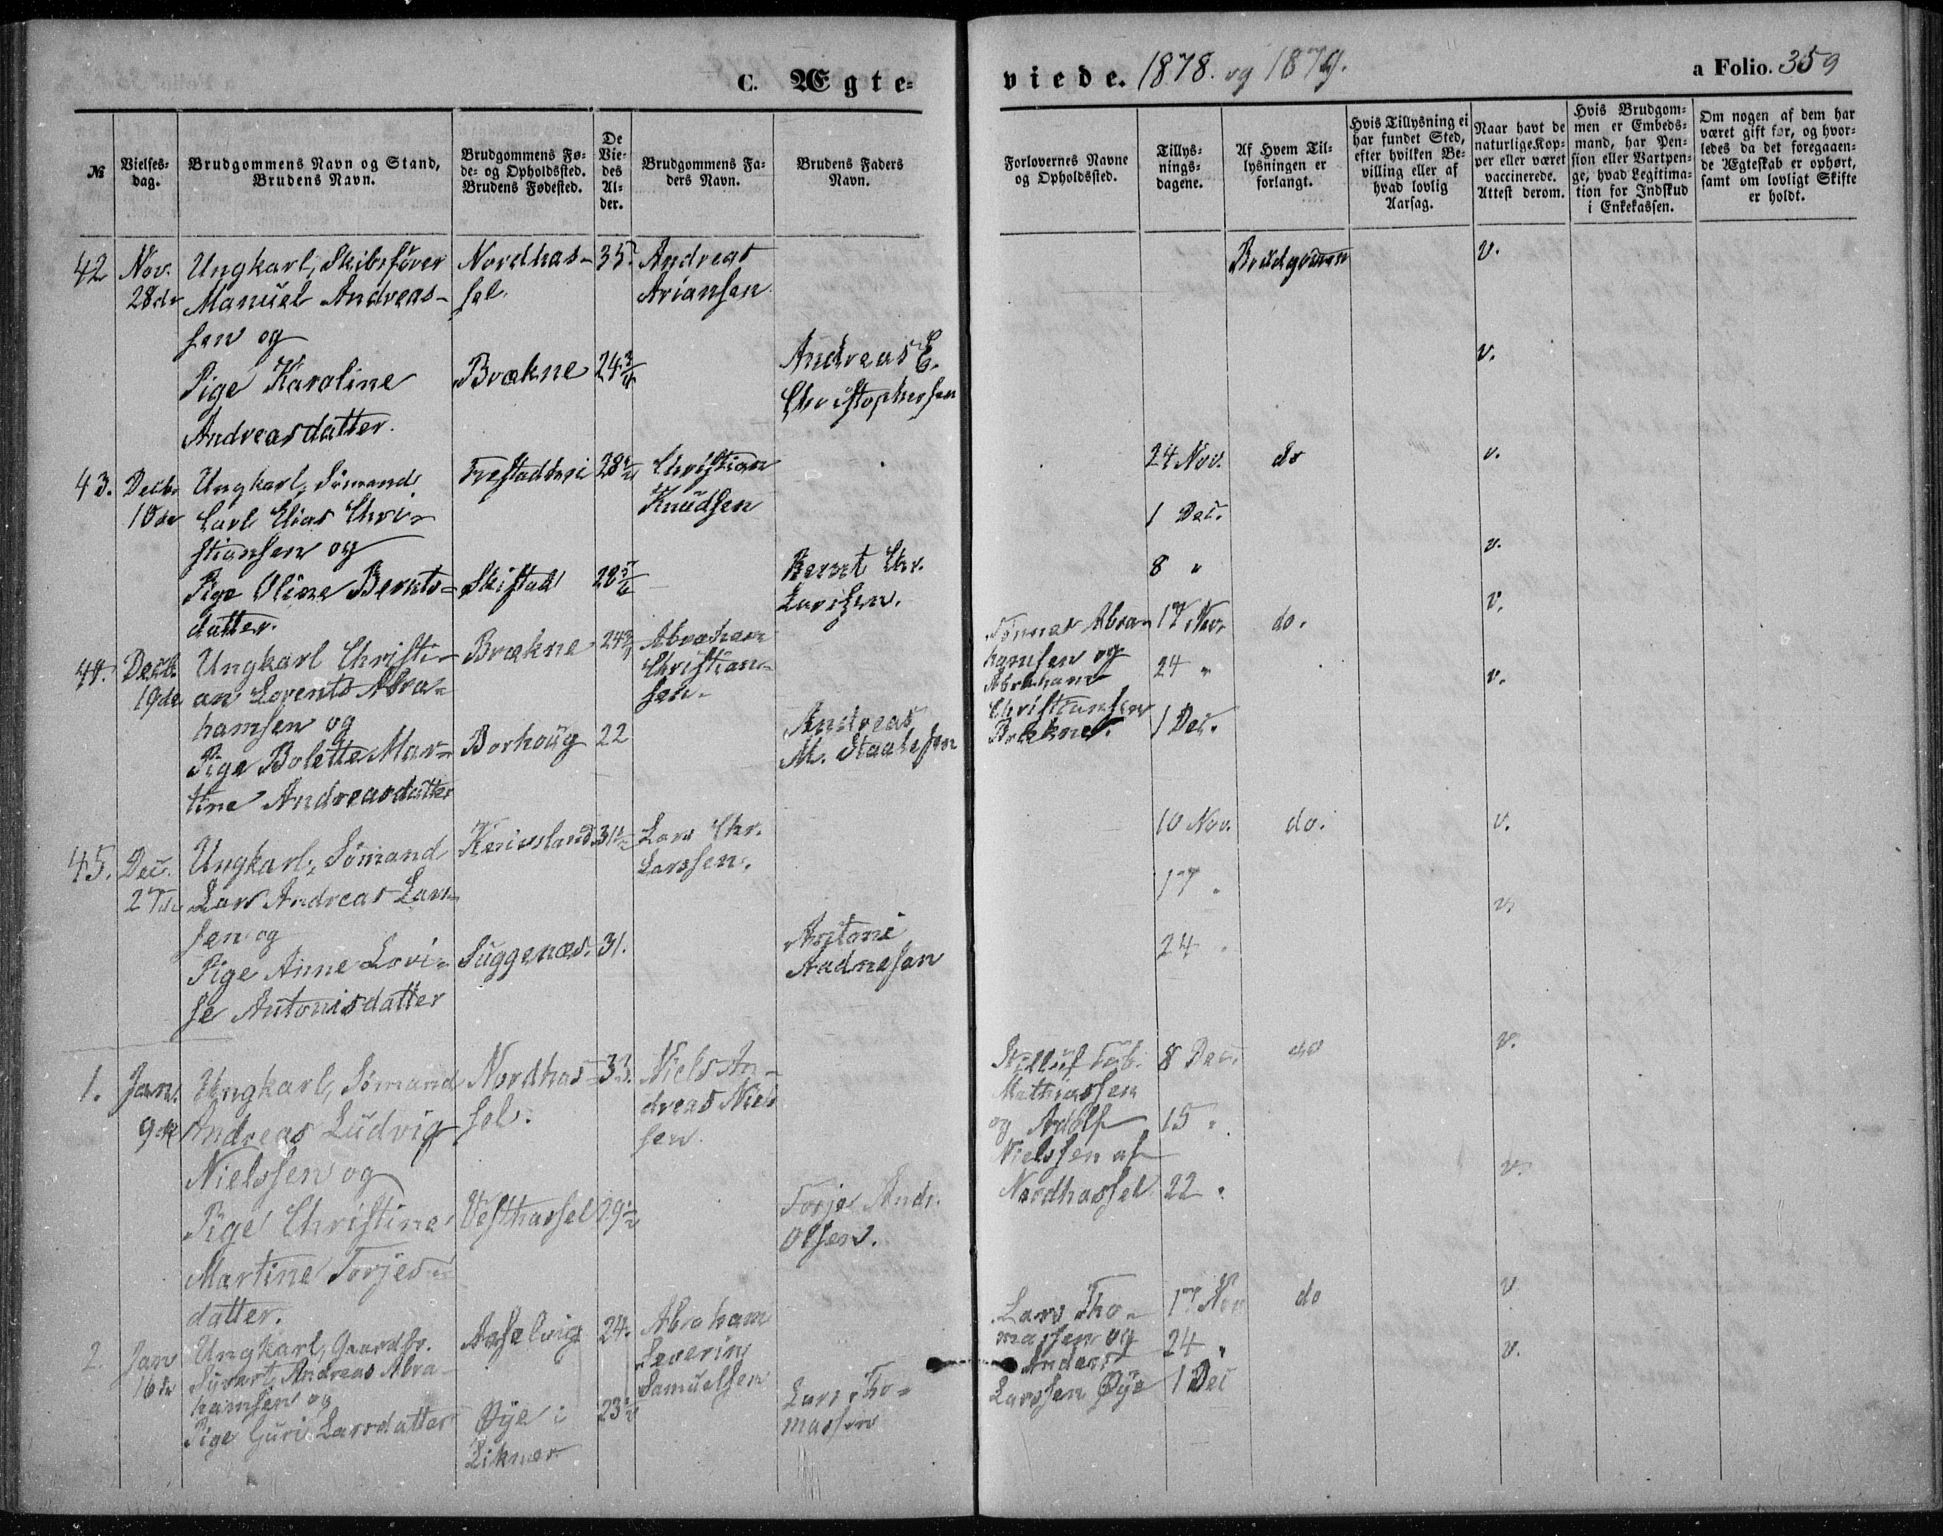 C. Ægte-
viede. 1878. og 1879.
a Folio. 359
№
Vielses-
dag.
Brudgommens Navn og Stand,
Brudens Navn.
Brudgommens Fø-
de- og Opholdssted.
Brudens Fødested.
De
Vie-
des
Al-
der.
Brudgommens Fa-
ders Navn.
Brudens Faders
Navn.
Forlovernes Navne
og Opholdssted.
Tillys-
nings-
dagene.
Af Hvem Til-
lysningen er
forlangt.
Hvis Tillysning ei
har fundet Sted,
efter hvilken Be-
villing eller af
hvad lovlig
Aarsag.
Naar havt de
naturlige Kop-
per eller været
vaccinerede.
Attest derom.
Hvis Brudgom-
men er Embeds-
mand, har Pen-
sion eller Vartpen-
ge, hvad Legitima-
tion for Indskud
i Enkekassen.
Om nogen af dem har
været gift før, og hvor-
ledes da det foregaaen-
de Ægteskab er ophørt,
samt om lovligt Skifte
er holdt.
42
Nov.
28de
Ungkarl, Skibsfører
Manuel Andreas-
sen og
Pige Karoline
Andreasdatter.
Nordhas-
sel.
Brækne
35
24 3/4
Andreas
Ariansen
Andreas E.
Christophersen
Brudgommen
v.
v.
43.
Decbr
10de
Ungkarl, Sømand
Carl Elias Chri-
stiansen og
Pige Oline Bernts-
datter.
Skistad
28
28
Christian
Knudsen
Bernt Chr.
Larssen.
24 Nov.
1 Dec.
8 "
do
v.
v.
44.
Decb.
19de
Ungkarl Christi-
an Lorents Abra-
hamsen og
Pige Bolette Mar-
tine Andreasdatter
Brækne
Borhoug
24
22
Abraham
Christian-
sen.
Andreas
M. Staalesen
Tønnes Abra-
hamsen og
Abraham
Christiansen
Brækne.
17 Nov.
24 "
1 Dec.
do.
v.
v.
45.
Dec.
27de
Ungkarl, Sømand
Lars Andreas Lars-
sen og
Pige Anne Lovi-
se Antonisdatter
Suggenæs.
31 1/2
31.
Lars Chr.
Larssen.
Antoni
Aadnesen
10 Nov.
17 "
24 "
do.
v.
v.
1.
Jan.
9de
Ungkarl, Sømand
Andreas Ludvig
Nielssen og
Pige Christine
Martine Torjes-
datter.
Nordhas-
sel.
Vesthassel
33.
29 1/2
Niels An-
dreas Niel-
sen
Torje Andr.
Olsen.
Mathiassen
og Adolf
Nielssen af
Nordhassel
8 Dec.
15 "
22 "
do
v.
v.
2.
Jan
16de
Ungkarl, Gaardbr.
Sivert Andreas Abra-
hamsen og
Pige Guri Larsdatter
Øye i
24.
23 1/2
Abraham
Severin
Samuelsen
Lars Tho-
massen
Lars Tho-
massen og
Anders
Larssen Øye
17 Nov
24 "
1 Dec
do
v
v.